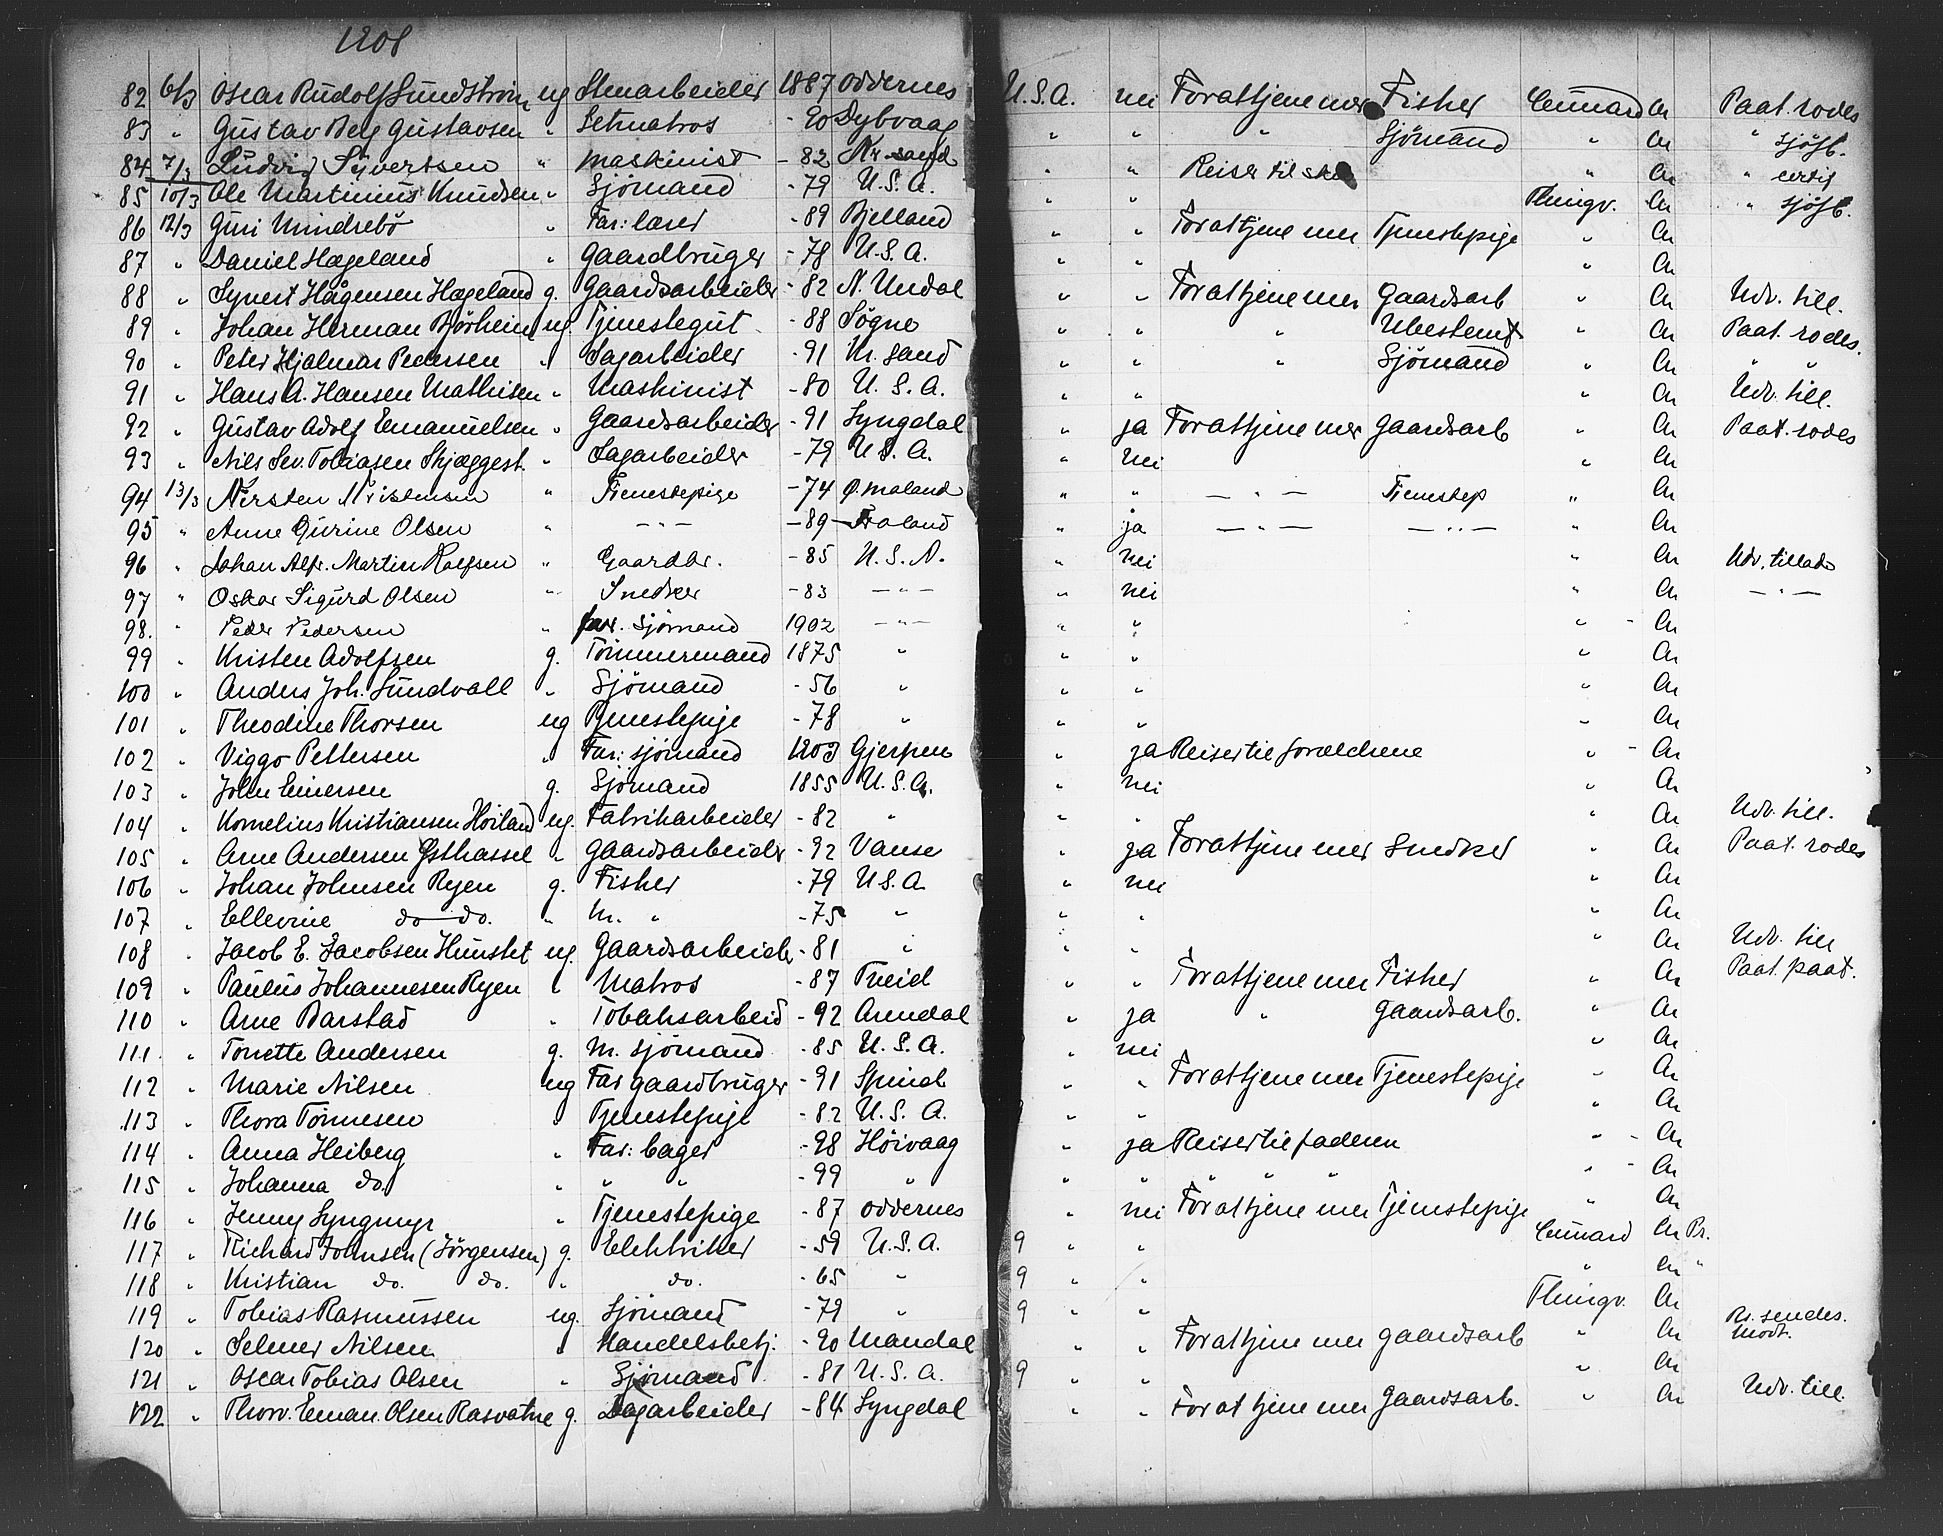 1208
82 6/3 Oscar Rudolf Sundström ug Stenarbeider 1887 Oddernes U.S.A. nei For at tjene mer Fisher Cunard Cr Paat. rodes
83 " Gustav Berg Gustavsen " Letmatros - 90 Dybvaag " " " Sjömand " Cr " sjöfb.
84 7/3 Ludvig Syvertsen " Maskinist - 82 Kr.sand " " Reiser til " Cr " certif
85 10/3 Ole Martinius Knudsen " Sjömand - 79 U.S.A. " " Thingv. Cr " sjöfb.
86 12/3 Guri Mindrebö " Far: lærer - 89 Bjelland " " For at tjene mer Tjenestepige " Cr
87 " Daniel Hægeland " Gaardbruger - 78 U.S.A. " " " Cr
88 " Syvert Hågensen Hægeland g. Gaardsarbeider - 82 N. Undal " " For at tjene mer Gaardsarb " Cr Udv. till.
89 " Johan Herman Börheim ug. Tjenestegut - 88 Sögne " " " Ubestemt " Cr Paat. rodes.
90 " Peter Hjalmar Pedersen " Sagarbeider - 91 Kr. sand " " " Sjömand " Cr " "
91 " Hans A. Hansen Mathisen " Maskinist - 80 U.S.A. " " " Cr Udv. till.
92 " Gustav Adolf Emanuelsen " Gaardsarbeider - 91 Lyngdal " ja For at tjene mer Gaardsarb " Cr Paat. rodes
93 " Nils Sev. Tobiasen Skjæggest. " Sagarbeider - 79 U.S.A. " nei " Cr
94 13/3 Kersten Kristensen " Tjenestepige - 74 Ø. Moland " " — " — Tjenestep " Cr
95 " Anne Gurine Olsen " — " — - 89 Froland " ja — " — — " — " Cr
96 " Johan Alfr. Martin Rolfsen " Gaardbr. - 85 U.S.A. " nei " Cr Udv. tillad
97 " Oskar Sigurd Olsen " Snedker - 83 — " — " nei " Cr — " —
98. " Peder Pedersen " far. Sjömand 1902 — " — " " " - Cr
99 " Kristen Adolfsen g. Tömmermand 1875 " " " " Cr
100 " Anders Joh. Sundvall " Sjömand - 56 " " " " Cr
101 " Theodine Thorsen ug Tjenestepige - 78 " " " " Cr
102 " Viggo Pettersen " Far: sjömand 1903 Gjerpen " ja Reiser til forældrene " - Cr
103 " John Einersen g. Sjömand 1855 U.S.A. " nei " Cr
104 " Kornelius Kristiansen Höiland ug. Fabrikarbeider - 82 " " " " Cr Udv. till.
105 " Arne Andersen Østhassel " Gaardsarbeider - 92 Vanse " ja For at tjene mer Snedker " Cr Paat. rodes
106 " Johan Johnsen Ryen g. Fisher - 79 U.S.A " nei " Cr
107 " Ellevine do do. " M. " - 75 " " " " Cr
108 " Jacob E. Jacobsen Hunstet ug. Gaardsarbeider - 81 " " " " Cr Udv. till
109 " Paulus Johannesen Ryen " Matros - 87 Tveid " " For at tjene mer Fisher " Cr Paat. paat.
110 " Arne Barstad " Tobaksarbeid - 92 Arendal " ja " Gaardsarb. " Cr
111. " Tonette Andersen g. M. sjömand - 85 U.S.A. " nei " Cr
112 " Marie Nilsen ug Far gaardbruger - 91 Spind " " For at tjene mer Tjenestepige " Cr
113 " Thora Tönnesen " Tjenestepige - 82 U.S.A. " " " Cr
114 " Anna Heiberg " Far: bager - 98 Höivaag " ja Reiser til faderen " - Cr
115 " Johanna do. " " " - 99 " " " " " " " - Cr
116 " Jenny Lyngmyr " Tjenestepige - 87 Oddernes " nei For at tjene mer Tjenestepige " Cr
117 " Richard Johnsen (Jörgensen) g. Elektriker - 59 U.S.A. 9 " " Cunard Cr Pr.
118 " Kristian do. do. " do. - 65 " 9 " " " Cr "
119 " Tobias Rasmussen ug. Sjömand - 79 " 9 " " Thingv. Cr
120 " Selmer Nilsen " Handelsbetj. - 90 Mandal " " For at tjene mer Gaardsarb " Cr Rs. sendes. Modt.
121 " Oscar Tobias Olsen " Sjömand - 81 U.S.A. 9 " " " Cr
122 " Thorv. Eman. Olsen Rasvatne g. Dagarbeider - 84 Lyngdal " " For at tjene mer Gaardsarb. " Cr Udv. till.